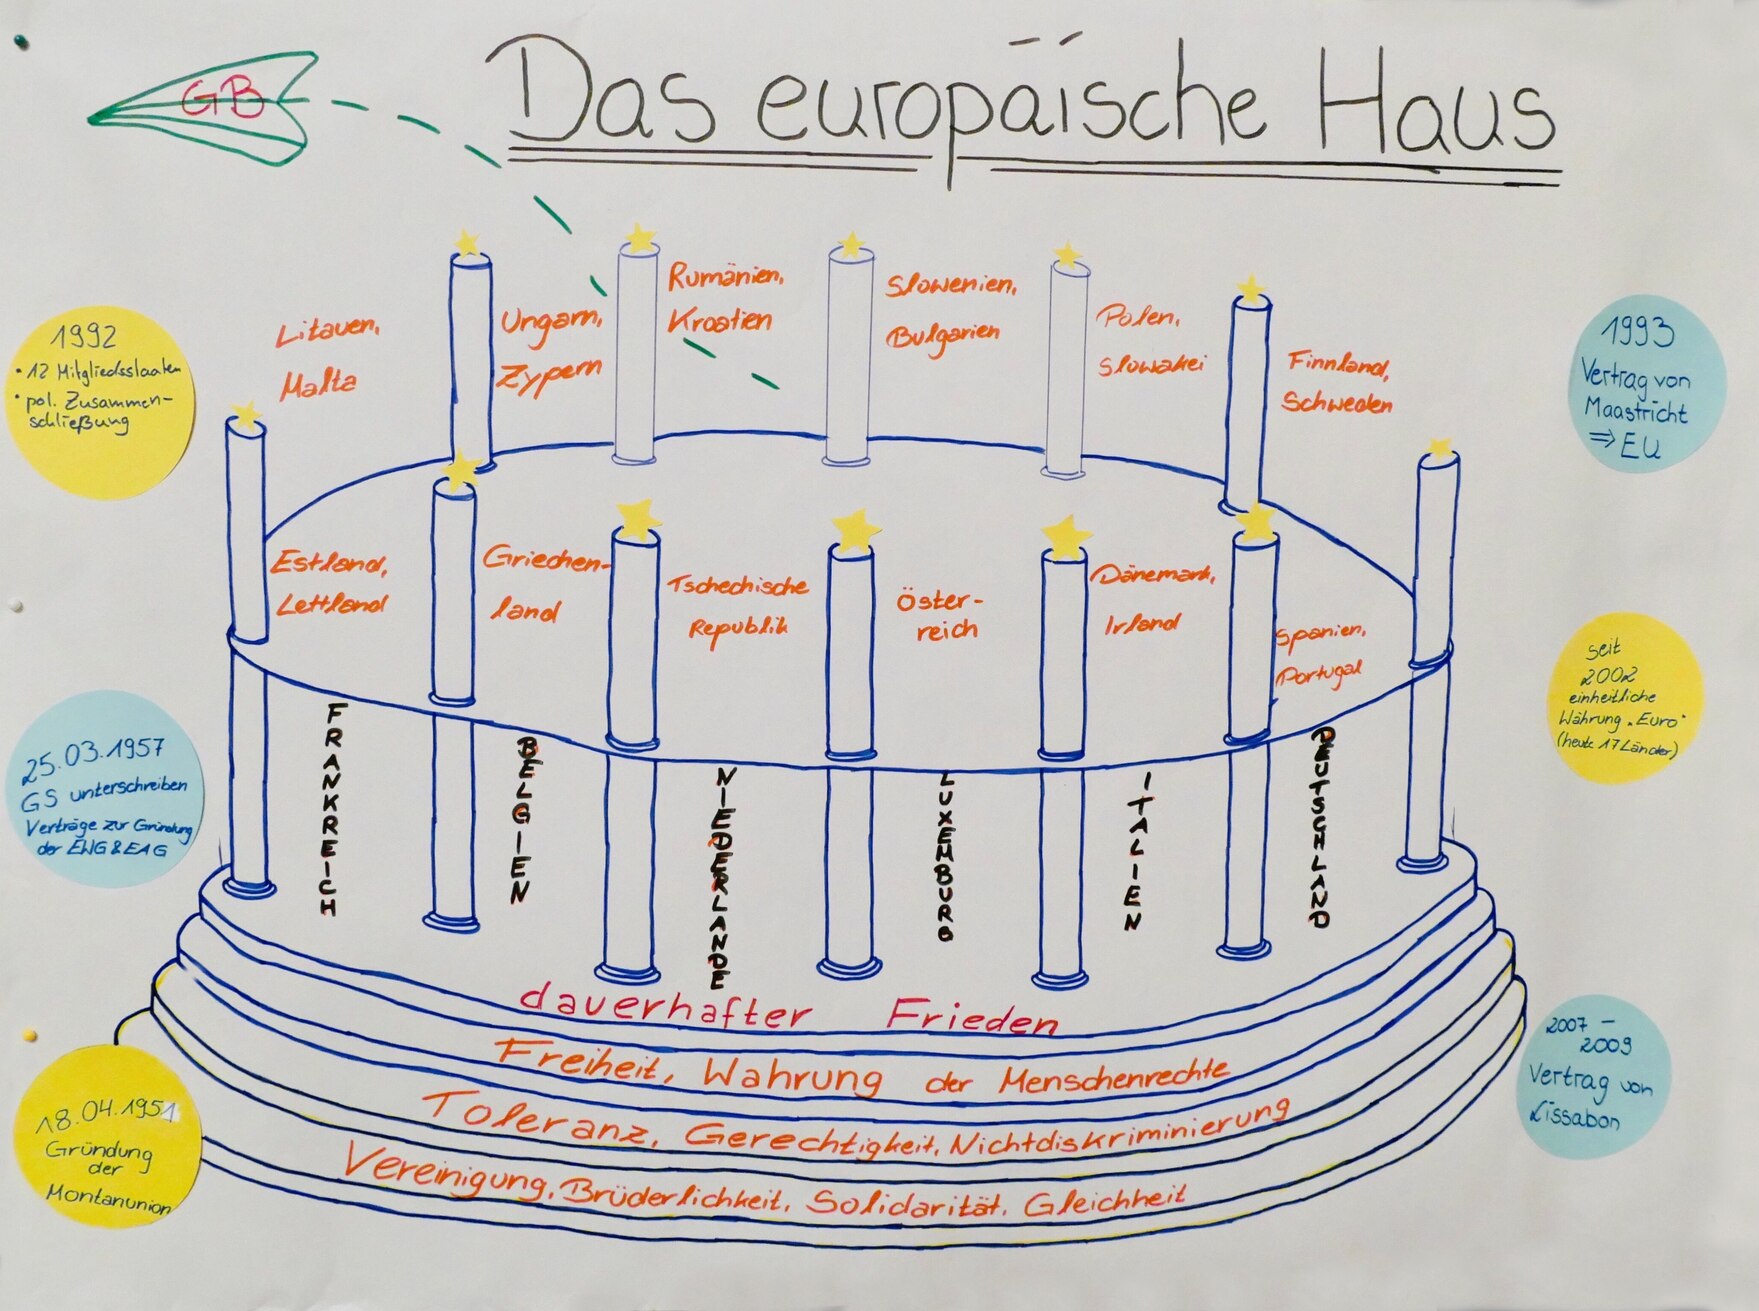 GB
Das europäische Haus
1992
• 12 Mitgliedsstaaten
• pol. Zusammen-
schließung
Litauen,
Malta
Ungarn,
Zypern
Rumänien,
Kroatien
Slowenien,
Bulgarien
Polen,
Slowakei
Finnland,
Schweden
1993
Vertrag von
Maastricht
⇒ EU
Estland,
Lettland
Griechen-
land
Tschechische
Republik
Öster-
reich
Dänemark,
Irland
Spanien,
Portugal
seit
2002
einheitliche
Währung "Euro"
(heute 17 Länder)
25.03.1957
GS unterschreiben
Verträge zur Gründung
der EWG & EAG
FRANKREICH
BELGIEN
NIEDERLANDE
LUXEMBURG
ITALIEN
DEUTSCHLAND
dauerhafter Frieden
Freiheit, Wahrung der Menschenrechte
Toleranz, Gerechtigkeit, Nichtdiskriminierung
Vereinigung, Brüderlichkeit, Solidarität, Gleichheit
18.04.1951
Gründung
der
Montanunion
2007 –
2009
Vertrag von
Lissabon